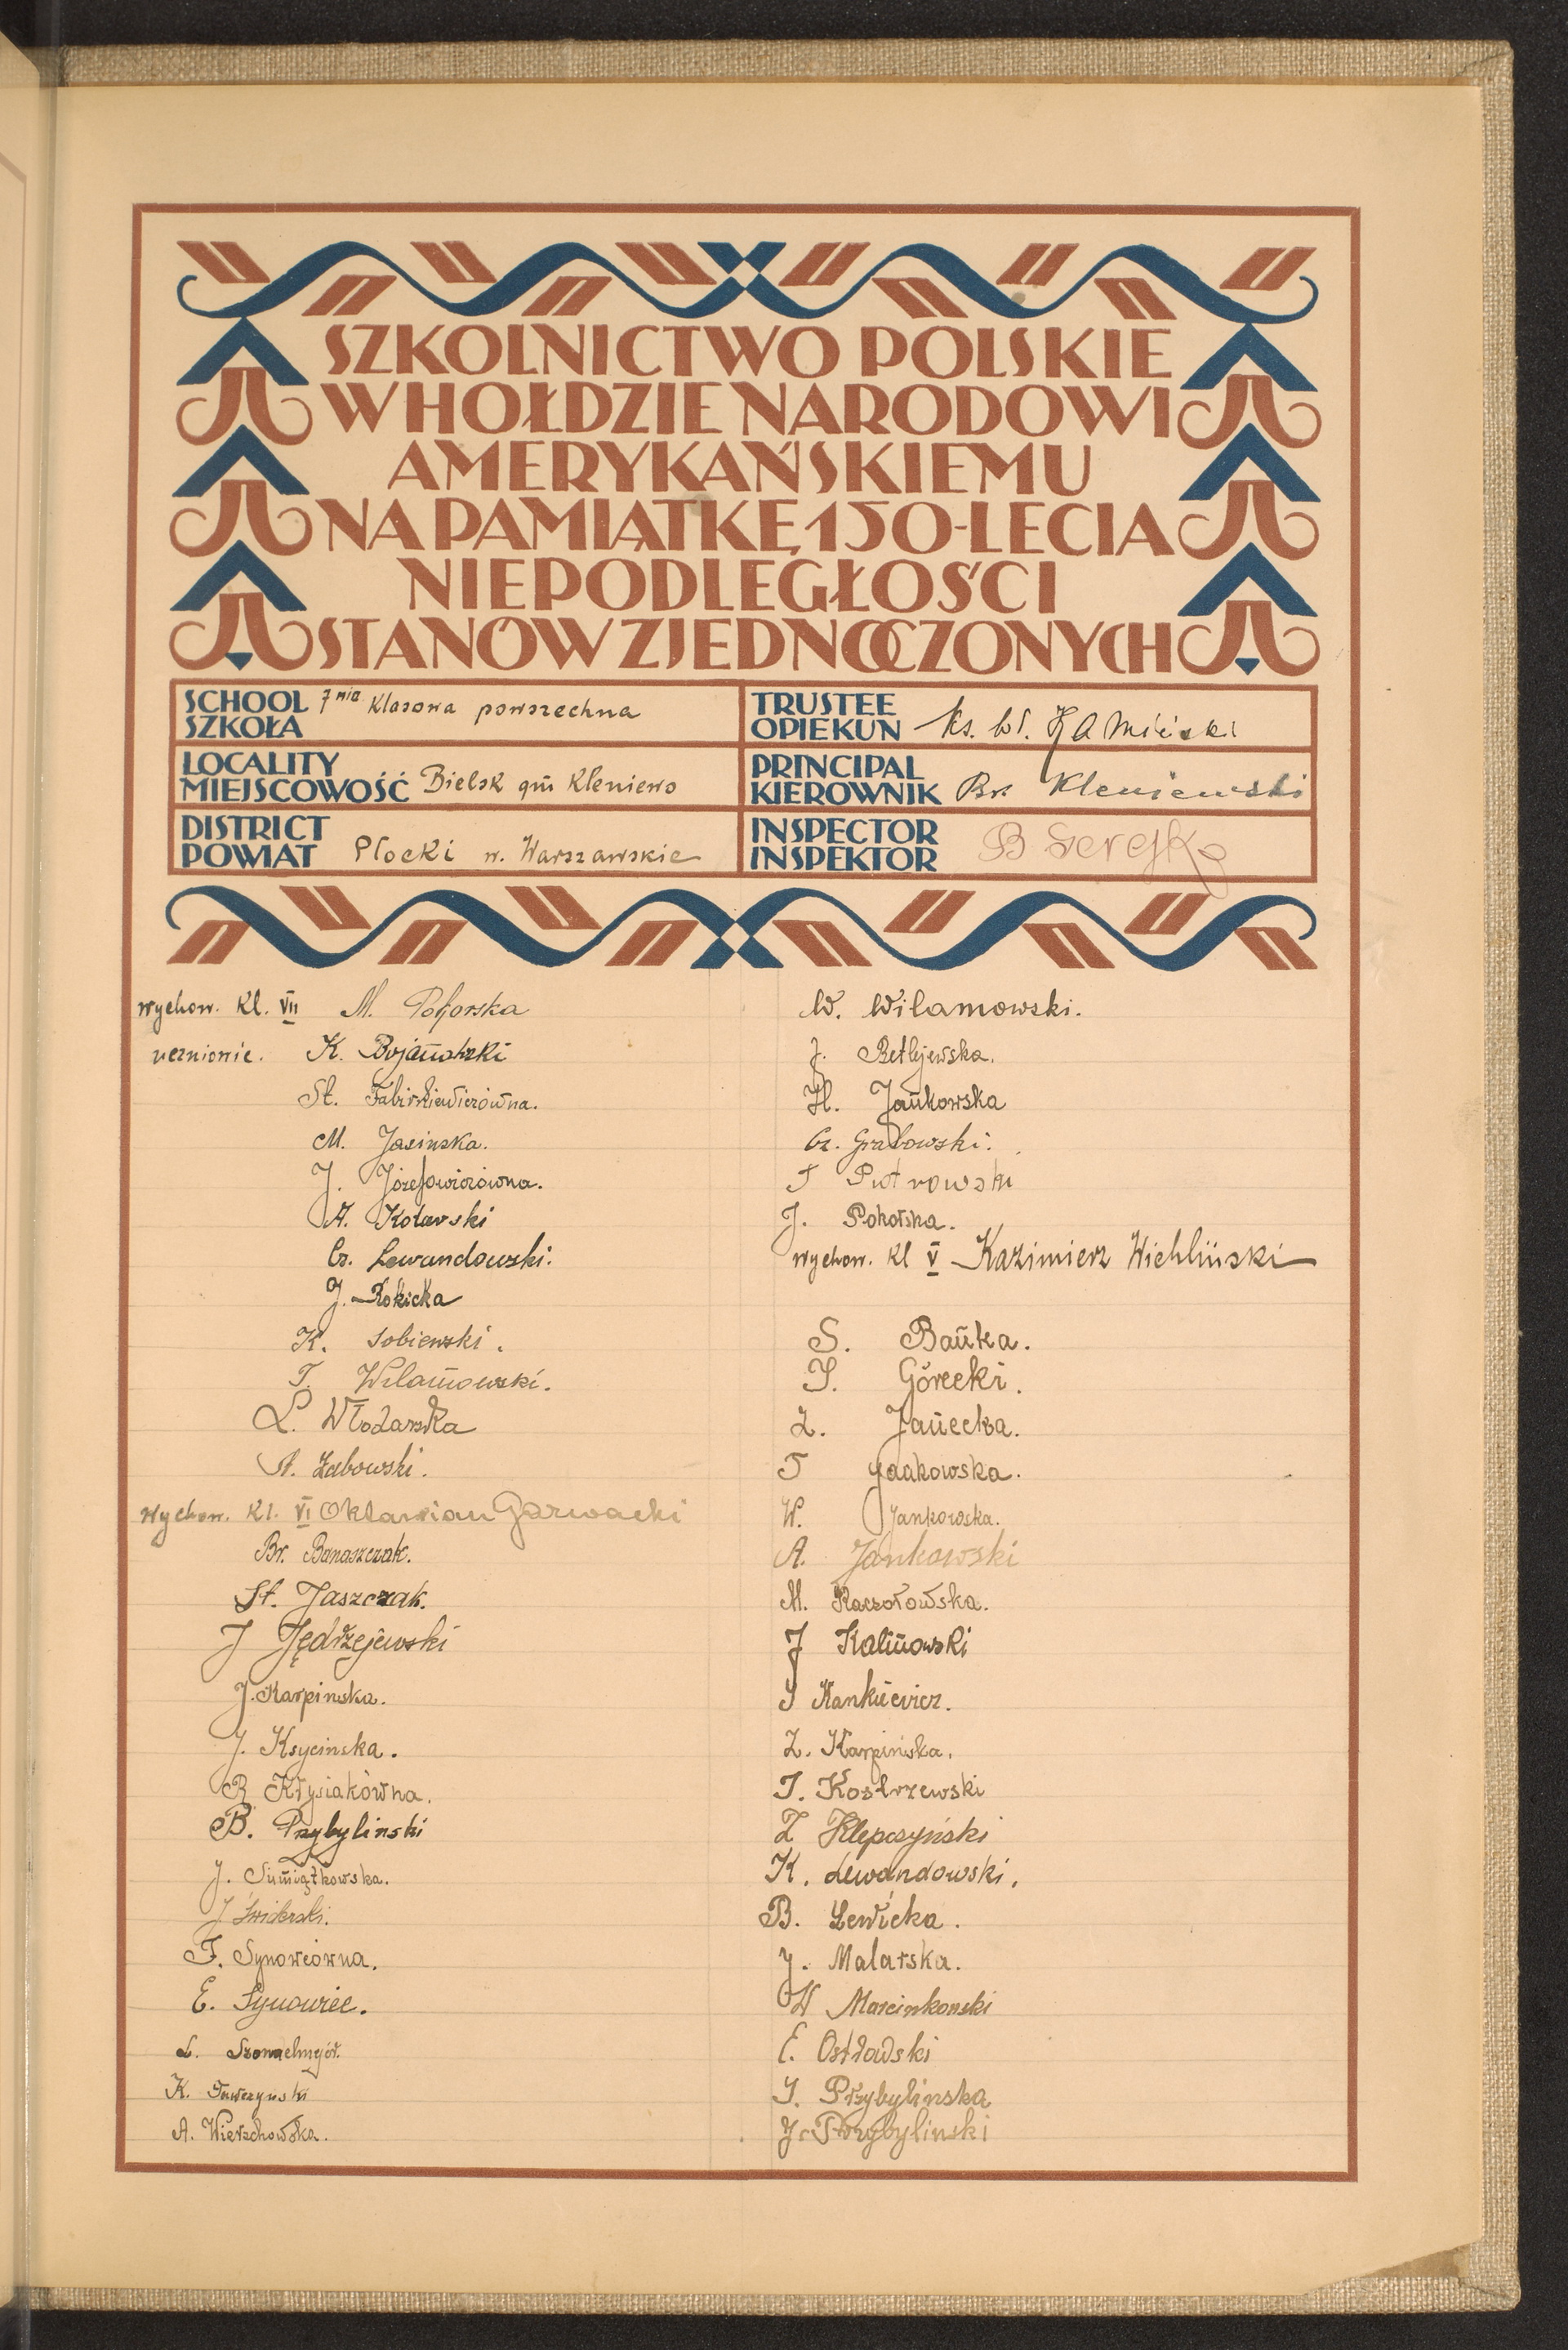 SZKOLNICTWO POLSKIE
W HOŁDZIE NARODOWI
AMERYKAŃSKIEMU
NA PAMIĄTKĘ 150-LECIA
NIEPODLEGŁOŚCI
STANÓW ZJEDNOCZONYCH
SCHOOL
SZKOŁA 7mio klasowa powszechna
TRUSTEE
OPIEKUN Ks. Wł.
LOCALITY
MIEJSCOWOŚĆ Bielsk gm Kleniewo
PRINCIPAL
KIEROWNIK Br. Kleniewski
DISTRICT
POWIAT Płocki w. Warszawskie
INSPECTOR
INSPEKTOR B Serejko
wychow. Kl. VII M.
uczniowie. K.
St.
M. Jasinska.
J. Józefowiczówna.
A. Kotarski
Cz. Lewandowski.
J. Rokicka
K. Sobiewski.
T. Wilamowski.
L. Włodarska
A. Żabowski.
wychow. Kl. VI Oktawian Garwacki
Br. Banaszczak.
St. Jaszczak.
J Jędrzejewski
J. Karpinska.
J. Ksycinska.
R Krysiakówna.
B. Przybylinski
J.
J Świderski.
F. Synowcówna.
E. Synowiec.
L.
K.
A. Wierzchowska.
W. Wilamowski.
J. Betlejewska.
H. Jankowska
Cz. Grabowski.
T Piotrowski
J. Pokorska.
wychow. kl V Kazimierz Wichliński
S. Banka.
S. Górecki.
Z. Janecka.
T
W. Jankowska.
A. Jankowski
M. Kaczorowska.
J Kalinowski
S Kankiewicz.
Z. Karpińska.
T. Kostrzewski
Z Klepczyński
K. Lewandowski.
B. Lewicka.
J. Malarska.
W Marcinkowski
E. Ostrowski
S. Przybylinska
J. Przybylinski